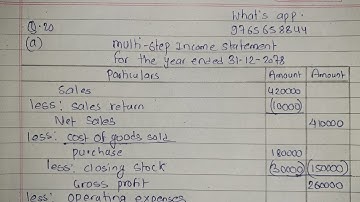 What's app.
Q.20 9765658844
(a) Multi-step Income Statement
for the year ended 31-12-2078
Particulars Amount Amount
Sales 420000
less: sales return (10000)
Net Sales 410000
less: cost of goods sold
purchase 180000
less: closing stock (30000) (150000)
Gross profit 260000
less: operating expenses